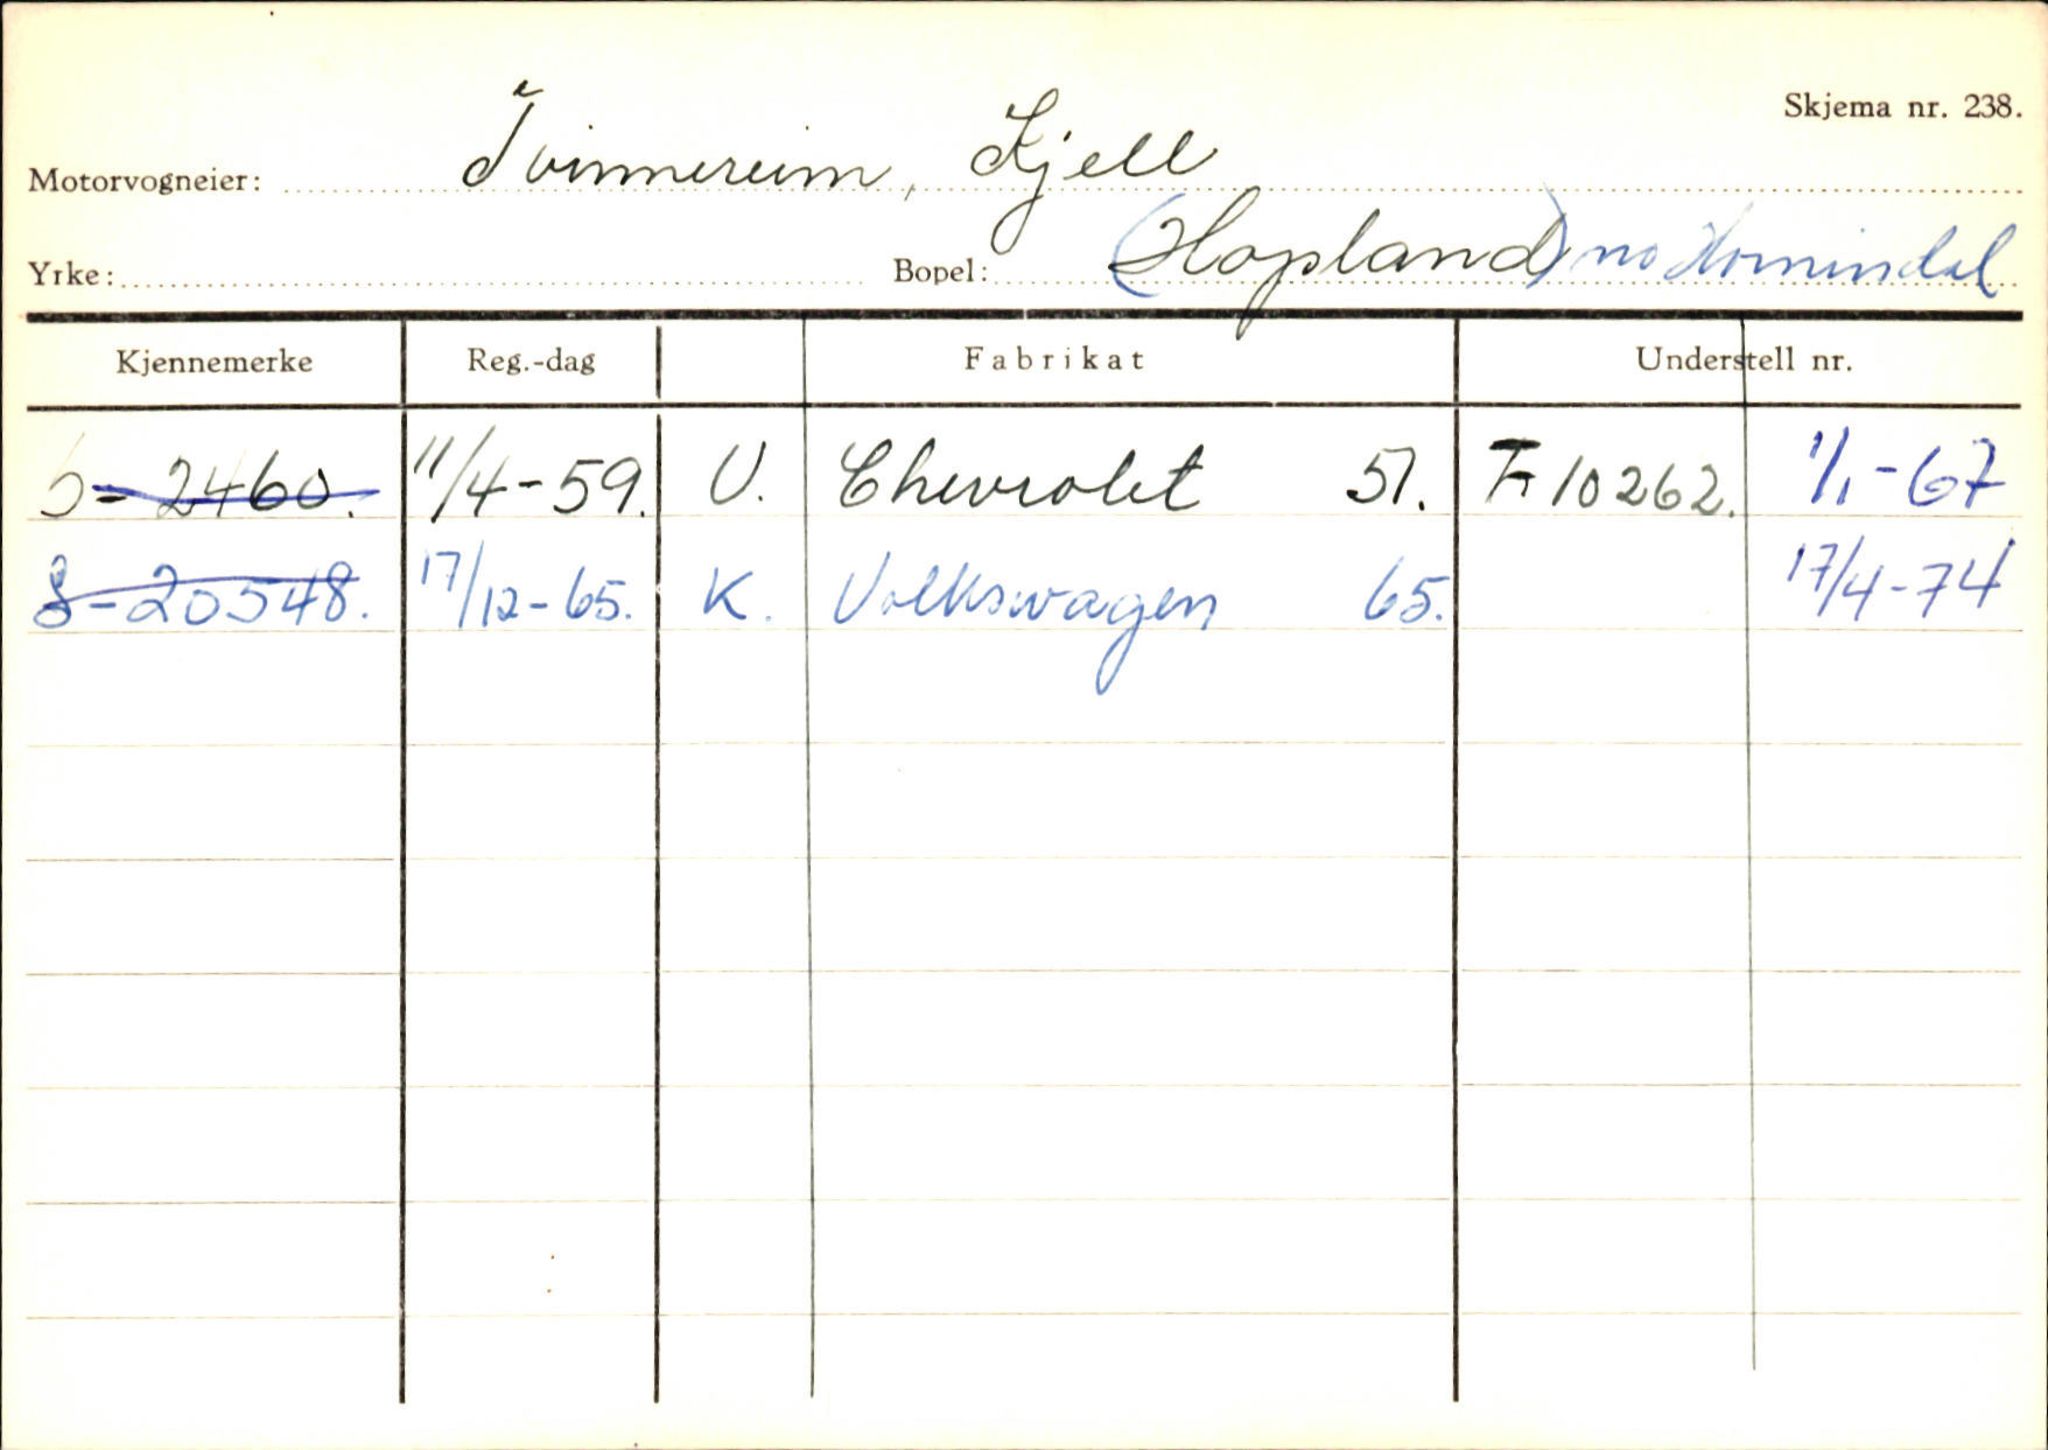 Skjema nr. 238.
Motorvogneier: Tvinnereim, Kjell
Yrke: Bopel: (Hopland) no Hornindal
Kjennemerke Reg.-dag Fabrikat Understell nr.
S-2460. 11/4-59. V. Chevrolet 51. F. 10262. 1/1-67
S-20548. 17/12-65. K. Volkswagen 65. 17/4-74